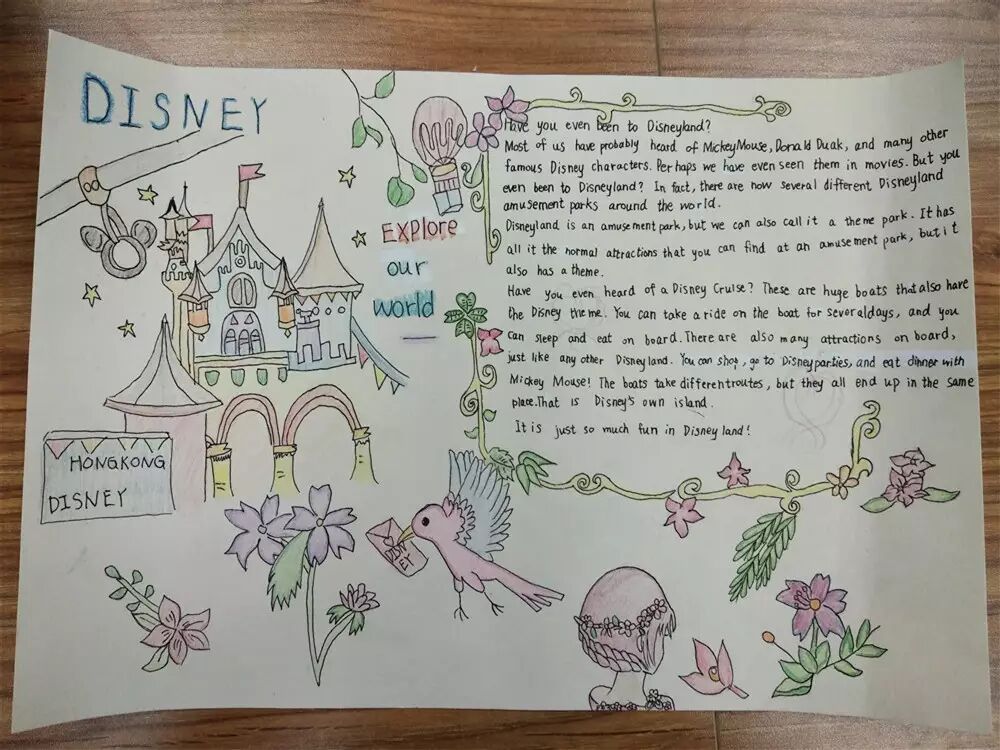 DISNEY
Explore
our
world
HONGKONG
DISNEY
DISN
EY
Have you even been to Disneyland?
Most of us have probably heard of MickeyMouse, Donald Duak, and many other
famous Disney characters. Perhaps we have even seen them in movies. But you
even been to Disneyland? In fact, there are now several different Disneyland
amusement parks around the world.
Disneyland is an amusement park, but we can also call it a theme park. It has
all it the normal attractions that you can find at an amusement park, but it
also has a theme.
Have you even heard of a Disney Cruise? These are huge boats that also have
the Disney theme. You can take a ride on the boat for several days, and you
can sleep and eat on board. There are also many attractions on board,
just like any other Disneyland. You can shop, go to Disney parties, and eat dinner with
Mickey Mouse! The boats take different routes, but they all end up in the same
place. That is Disney's own island.
It is just so much fun in Disney land!